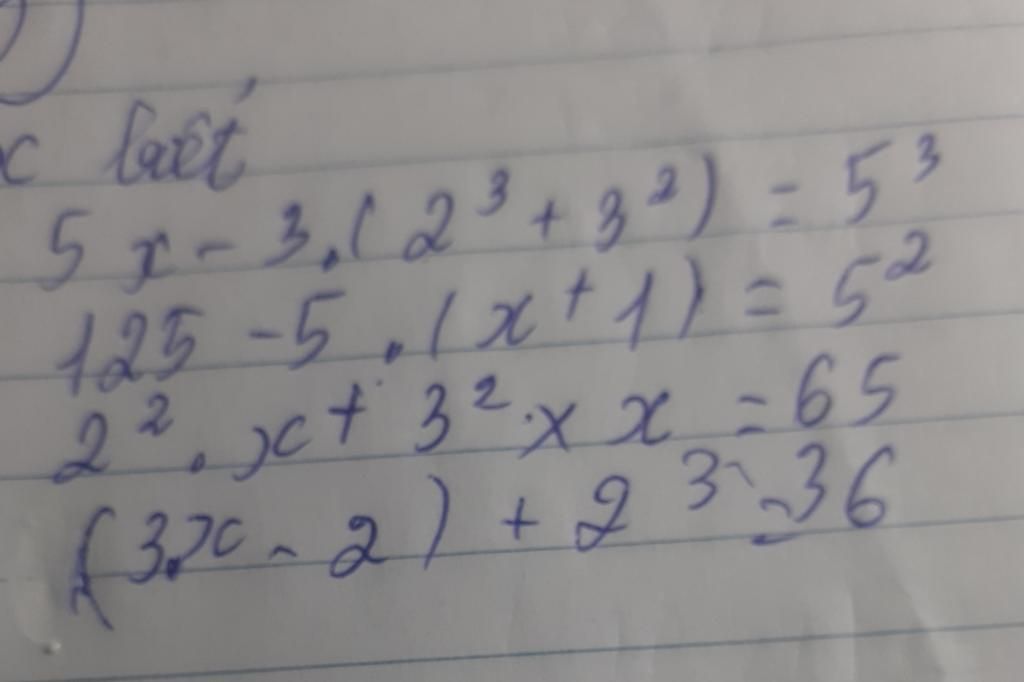 x biết
5x - 3.(2³ + 3²) = 5³
125 - 5.(x + 1) = 5²
2².x + 3².x x = 65
(3.x - 2) + 2³ = 36